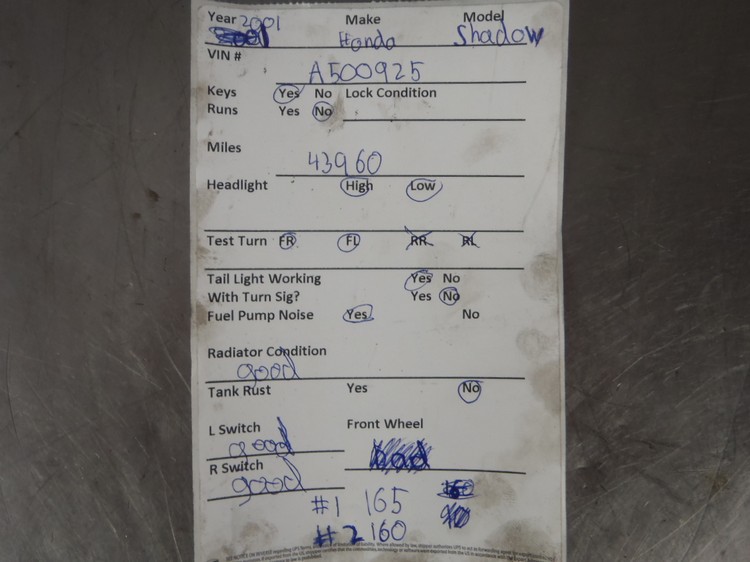 Year 2001 Make Model
Honda Shadow
VIN #
A500925
Keys Yes No Lock Condition
Runs Yes No
Miles
43960
Headlight High Low
Test Turn FR FL RR RL
Tail Light Working Yes No
With Turn Sig? Yes No
Fuel Pump Noise Yes No
Radiator Condition
good
Tank Rust Yes No
L Switch Front Wheel
good bad
R Switch
good
#1 165
#2 160